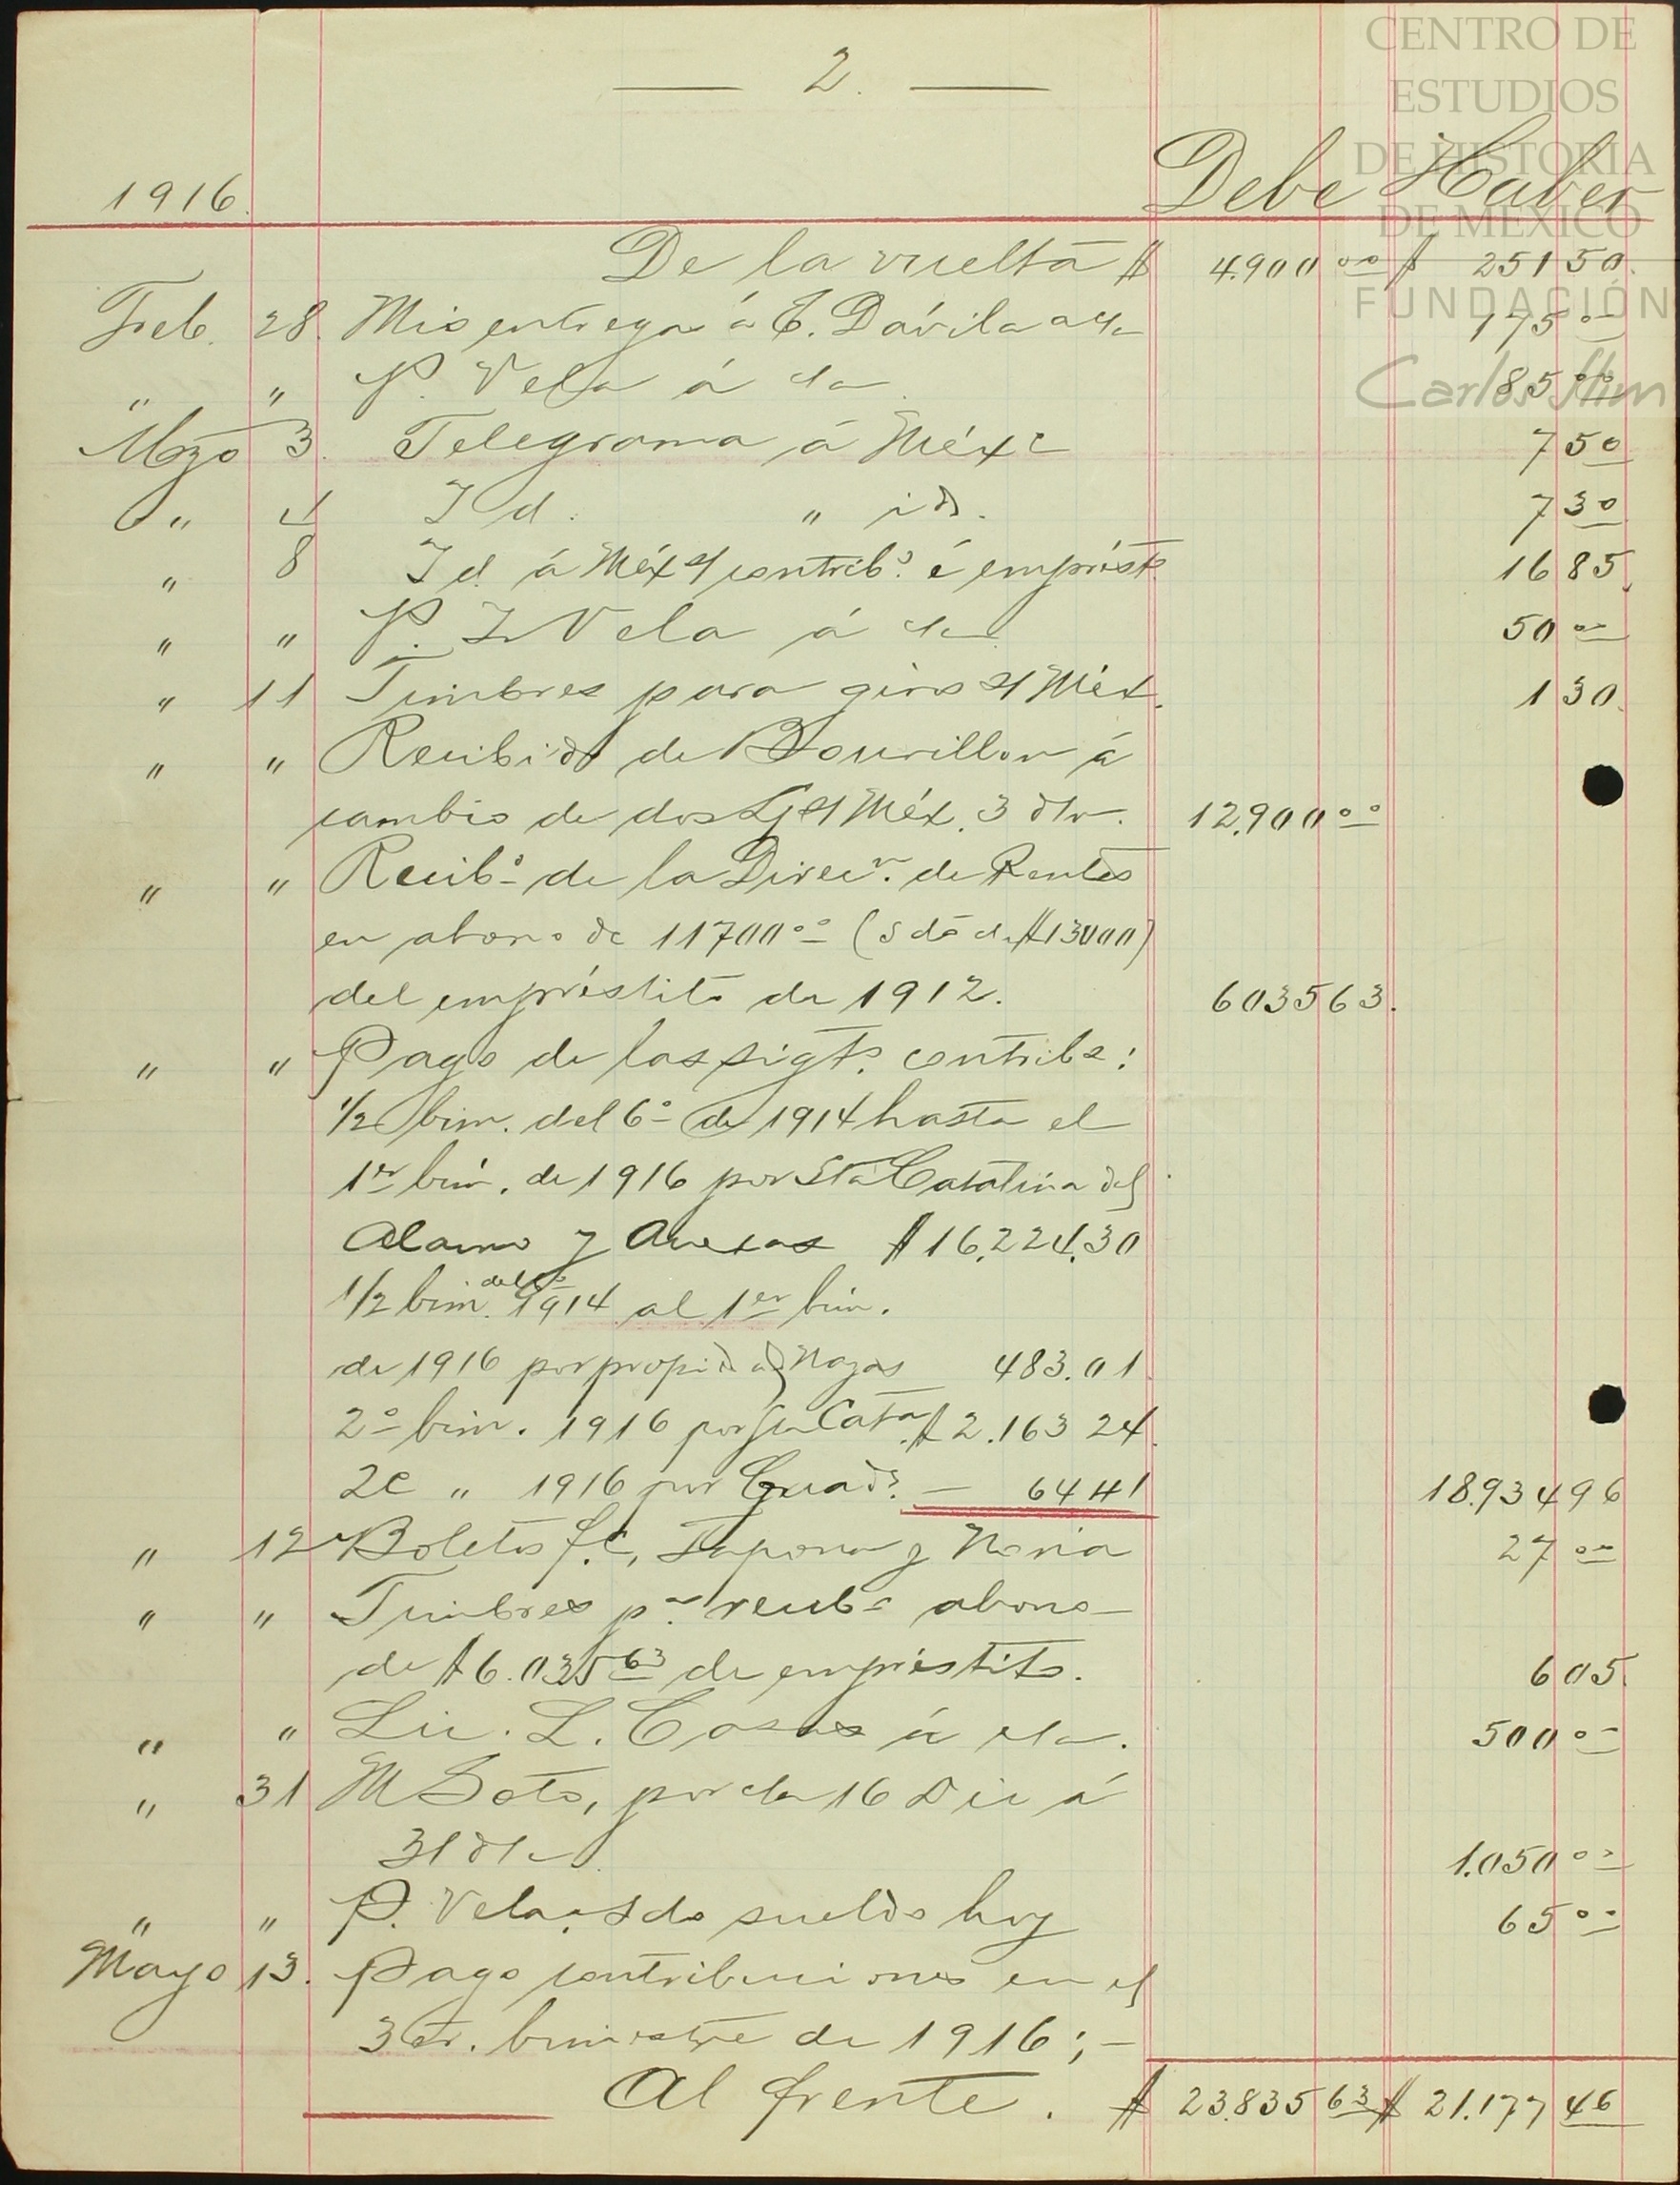 CENTRO DE
ESTUDIOS
DE HISTORIA
DE MÉXICO
FUNDACIÓN
Carlos Slim
— 2. —
1916. Debe Haber
De la vuelta $ 4.900 00 $ 251 50
Feb. 28. Mis entregas á E. Dávila a cta 175 00
" " P. Vela á cta 85 00
Mzo 3. Telegrama á Méxc 7 50
" 4 Id. " id. 7 30
" 8 Id á Méx s/ contribs. é emprésto 16 85
" " P. I. Vela á cta 50 00
" 11 Timbres para giros s/ Méx. 1 30
" " Recibido de Bourillon á
cambio de dos s/ Méx. 3 d/v. 12.900 00
" " Recibo de la Direcn. de Rentas
en abono de 11700 00 (sdo de $13000)
del empréstito de 1912. 6035 63.
" " Pago de las sigts. contribs:
1/2 bim. del 6o de 1914 hasta el
1er bim. de 1916 por Sta Catalina del
Alamo y Anexas $16,224.30
1/2 bim. del 6o 1914 al 1er bim.
de 1916 por propiedad Nazas 483.01
2o bim. 1916 por Sta Cata. $2.163 24
2o " 1916 por Guade. — 64 41 18.934 96
" 12 Boletos f.c. Tapona y Noria 27 00
" " Timbres pa. recibo abono
de $6.035 63 de empréstito. 6 05
" " Lic. L. Casas á cta. 500 00
" 31 M Soto, por cta 16 Dic á
31 d/ 1.050 00
" " P. Vela, sdo sueldo hoy 65 00
Mayo 13. Pago contribuciones en el
3er. bimestre de 1916; —
Al frente. $ 23.835 63 $ 21.177 46